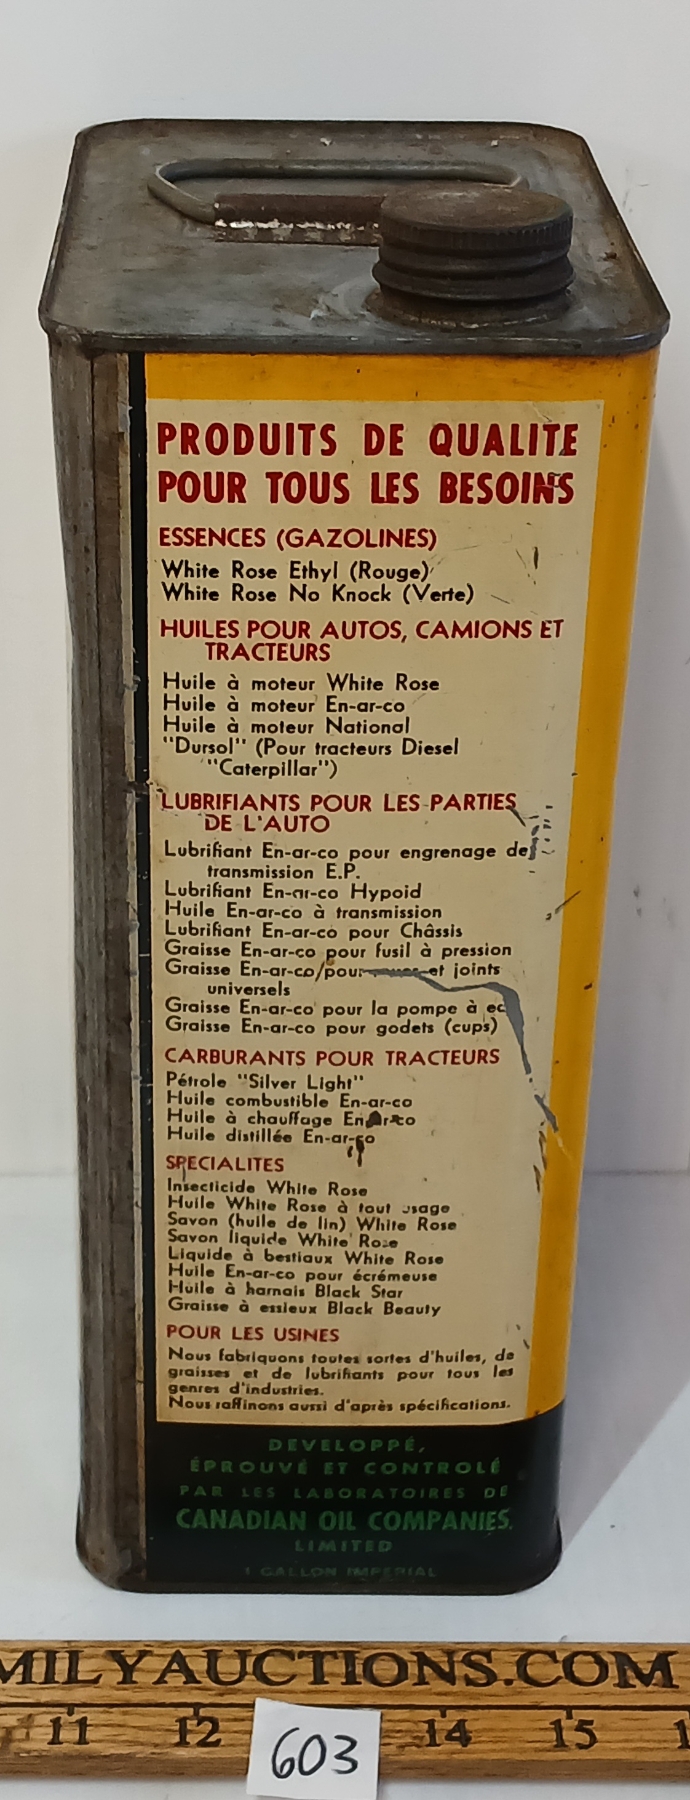 PRODUITS DE QUALITE
POUR TOUS LES BESOINS
ESSENCES (GAZOLINES)
White Rose Ethyl (Rouge)
White Rose No Knock (Verte)
HUILES POUR AUTOS, CAMIONS ET
TRACTEURS
Huile à moteur White Rose
Huile à moteur En-ar-co
Huile à moteur National
"Dursol" (Pour tracteurs Diesel
"Caterpillar")
LUBRIFIANTS POUR LES PARTIES
DE L'AUTO
Lubrifiant En-ar-co pour engrenage de
transmission E.P.
Lubrifiant En-ar-co Hypoid
Huile En-ar-co à transmission
Lubrifiant En-ar-co pour Châssis
Graisse En-ar-co pour fusil à pression
Graisse En-ar-co pour et joints
universels
Graisse En-ar-co pour la pompe à
Graisse En-ar-co pour godets (cups)
CARBURANTS POUR TRACTEURS
Pétrole "Silver Light"
Huile combustible En-ar-co
Huile à chauffage En-ar-co
Huile distillée En-ar-co
SPECIALITES
Insecticide White Rose
Huile White Rose à tout usage
Savon (huile de lin) White Rose
Savon liquide White Rose
Liquide à bestiaux White Rose
Huile En-ar-co pour écrémeuse
Huile à harnais Black Star
Graisse à essieux Black Beauty
POUR LES USINES
Nous fabriquons toutes sortes d'huiles, de
graisses et de lubrifiants pour tous les
genres d'industries.
Nous raffinons aussi d'après spécifications.
DEVELOPPÉ,
ÉPROUVÉ ET CONTROLÉ
PAR LES LABORATOIRES DE
CANADIAN OIL COMPANIES,
LIMITED
1 GALLON IMPERIAL
MILYAUCTIONS.COM
11 12 14 15
603